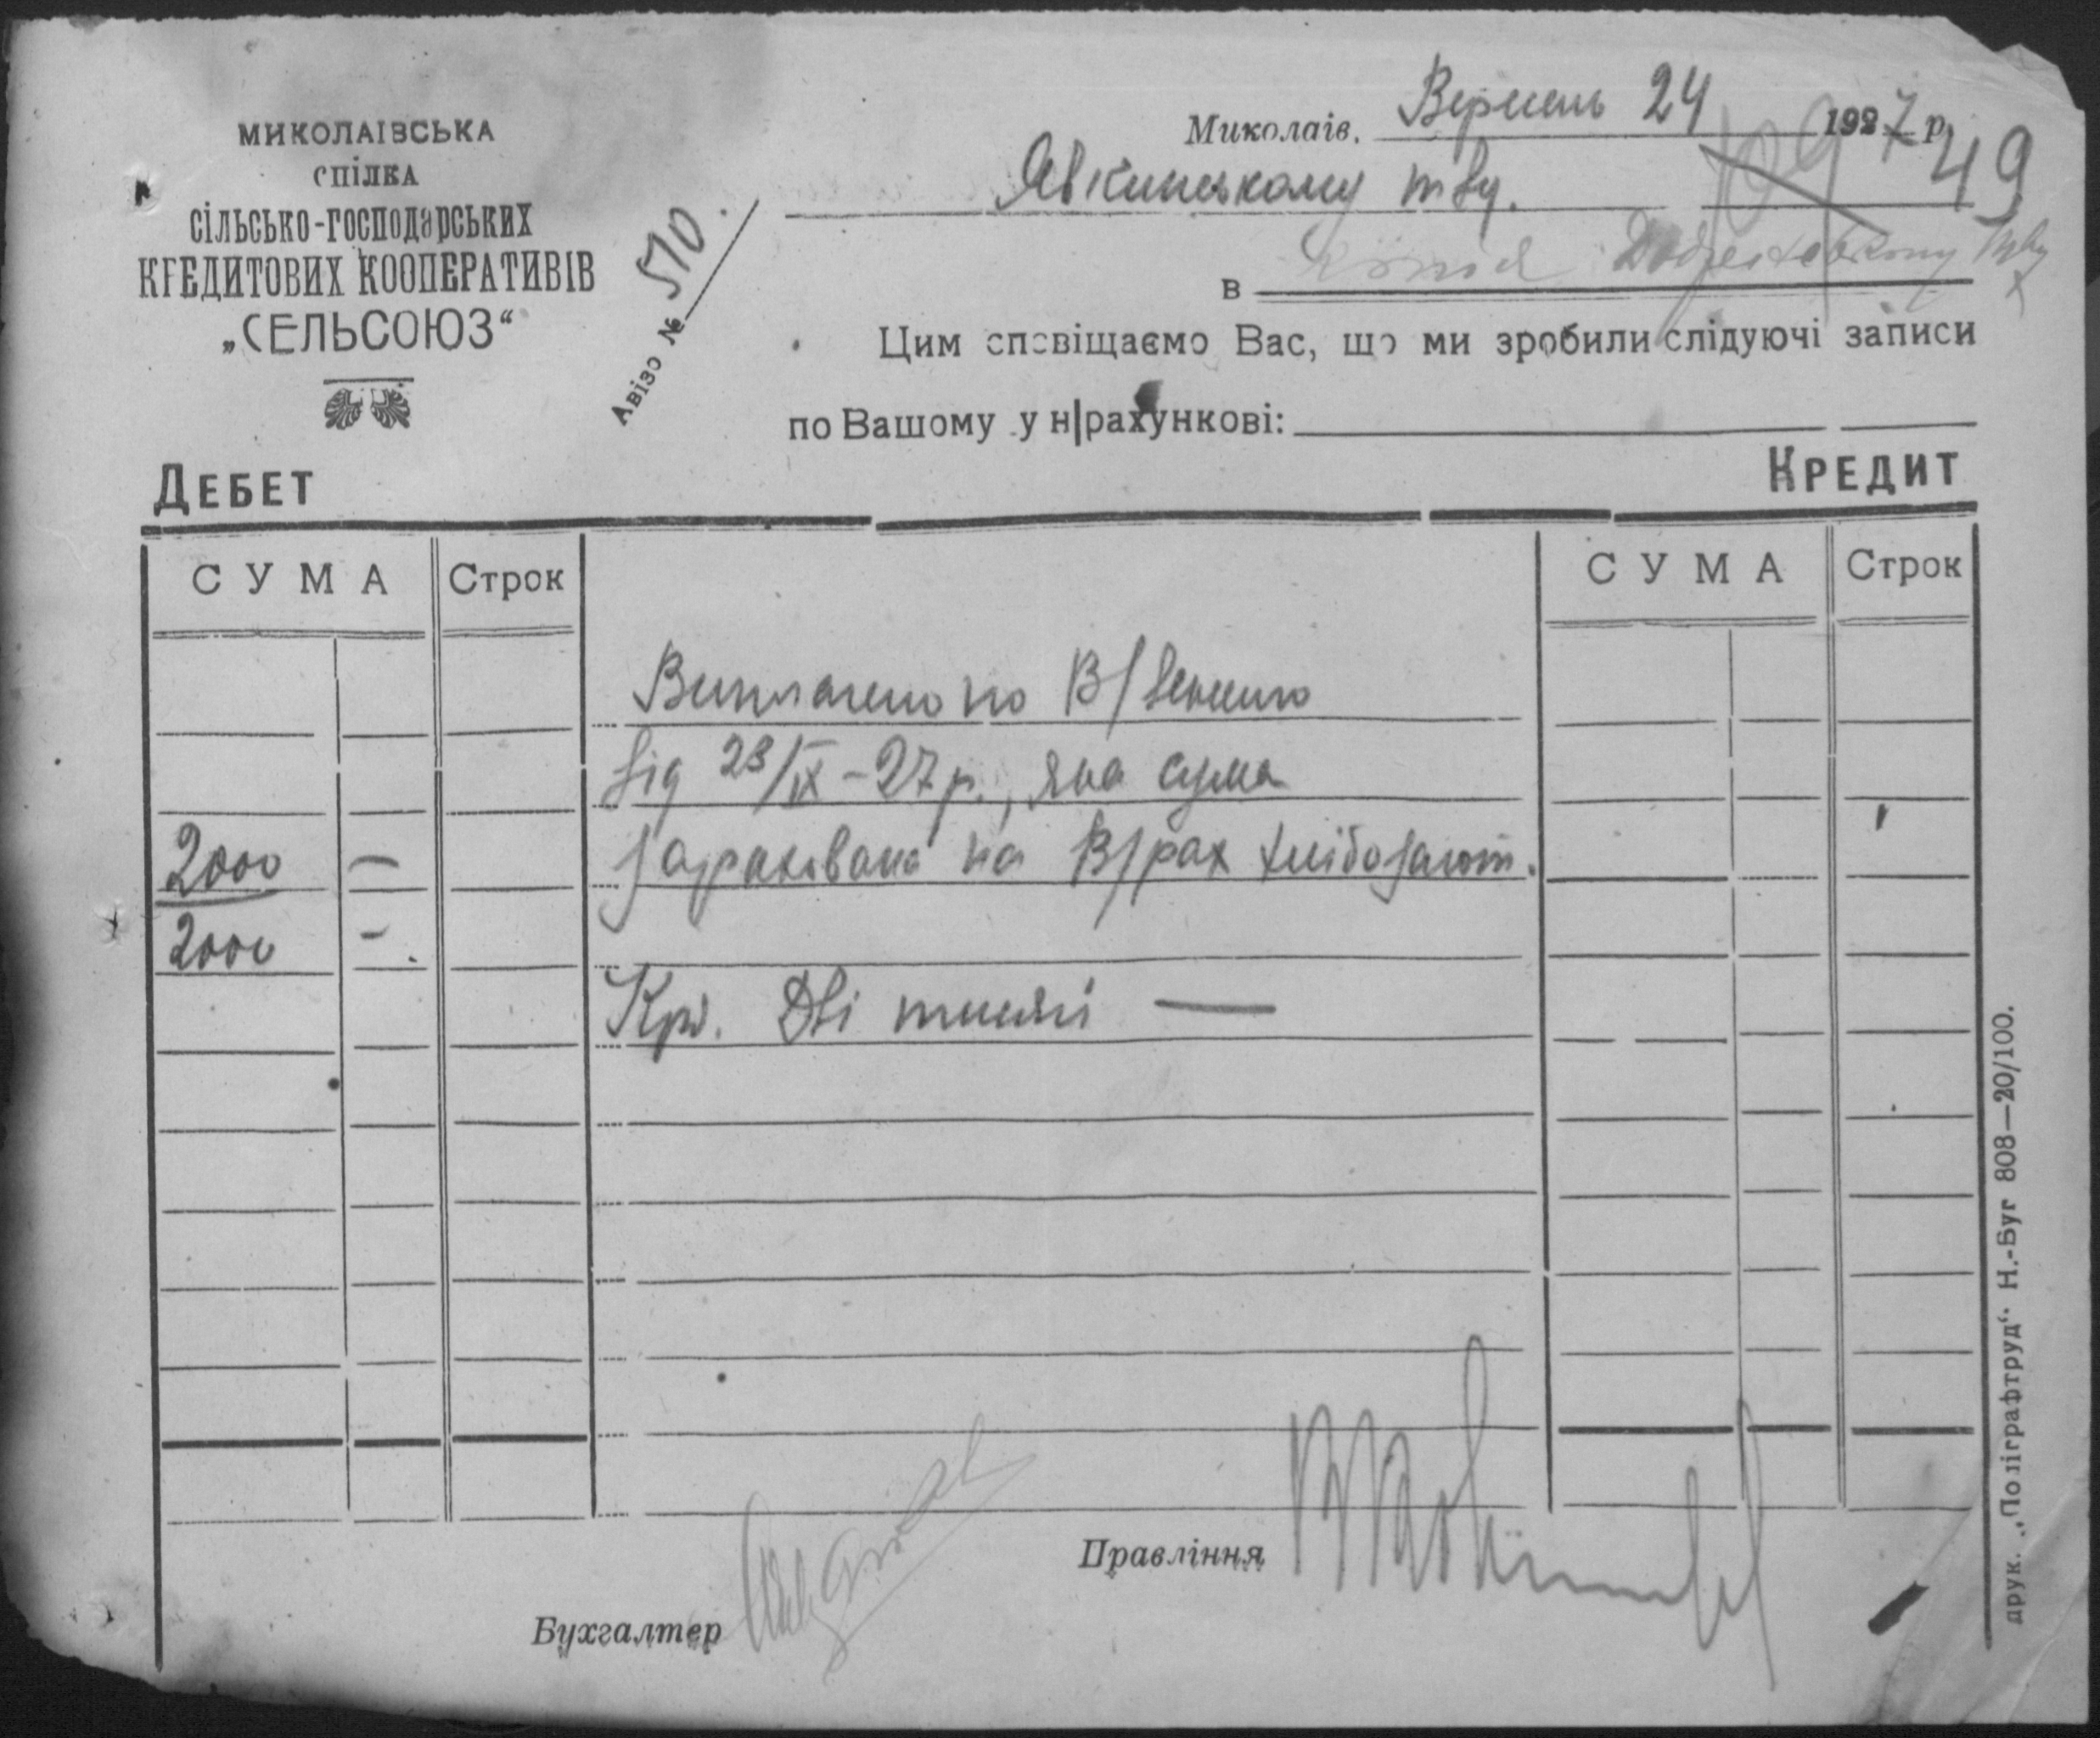 МИКОЛАІВСЬКА
СПІЛКА
СІЛЬСЬКО-ГОСПОДАРСЬКИХ
КРЕДИТОВИХ КООПЕРАТИВІВ
„СЕЛЬСОЮЗ“
Авізо № 510
Миколаів. Вересень 24 1927 р.
109 49
Явкинському тву.
в Копія
Цим сповіщаємо Вас, що ми зробили слідуючі записи
по Вашому у н|рахункові:
ДЕБЕТ КРЕДИТ
СУМА Строк СУМА Строк
Виплачено по В/
від 23/IX – 27 р., яка сума
2000 — зарахована на В/рах хлібозагот.
2000 –
Крб. Дві тисячі —
Правління
Бухгалтер
друк. „Поліграфтруд“ Н.-Буг 808—20/100.